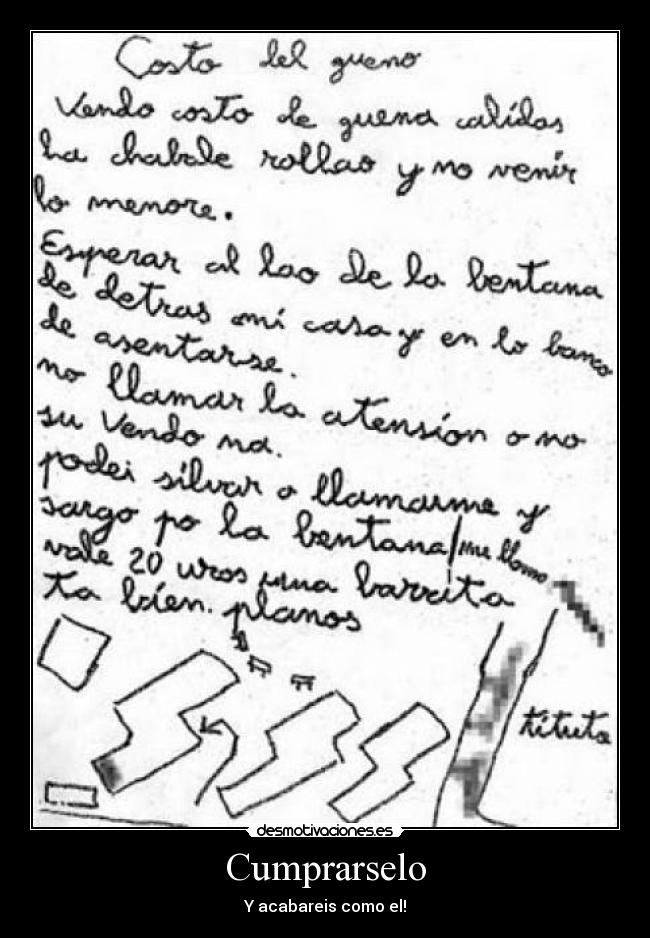 Costo del gueno
Vendo costo de guena calidas
ha chabale rollao y no venir
lo menore.
Esperar al lao de la bentana
de detras mi casa y en lo banco
de asentarse.
no llamar la atension o no
su vendo na.
podei silvar o llamarme y
sargo po la bentana/me llamo
vale 20 uros una barrita
ta bien. planos
tituto
desmotivaciones.es
Cumprarselo
Y acabareis como el!